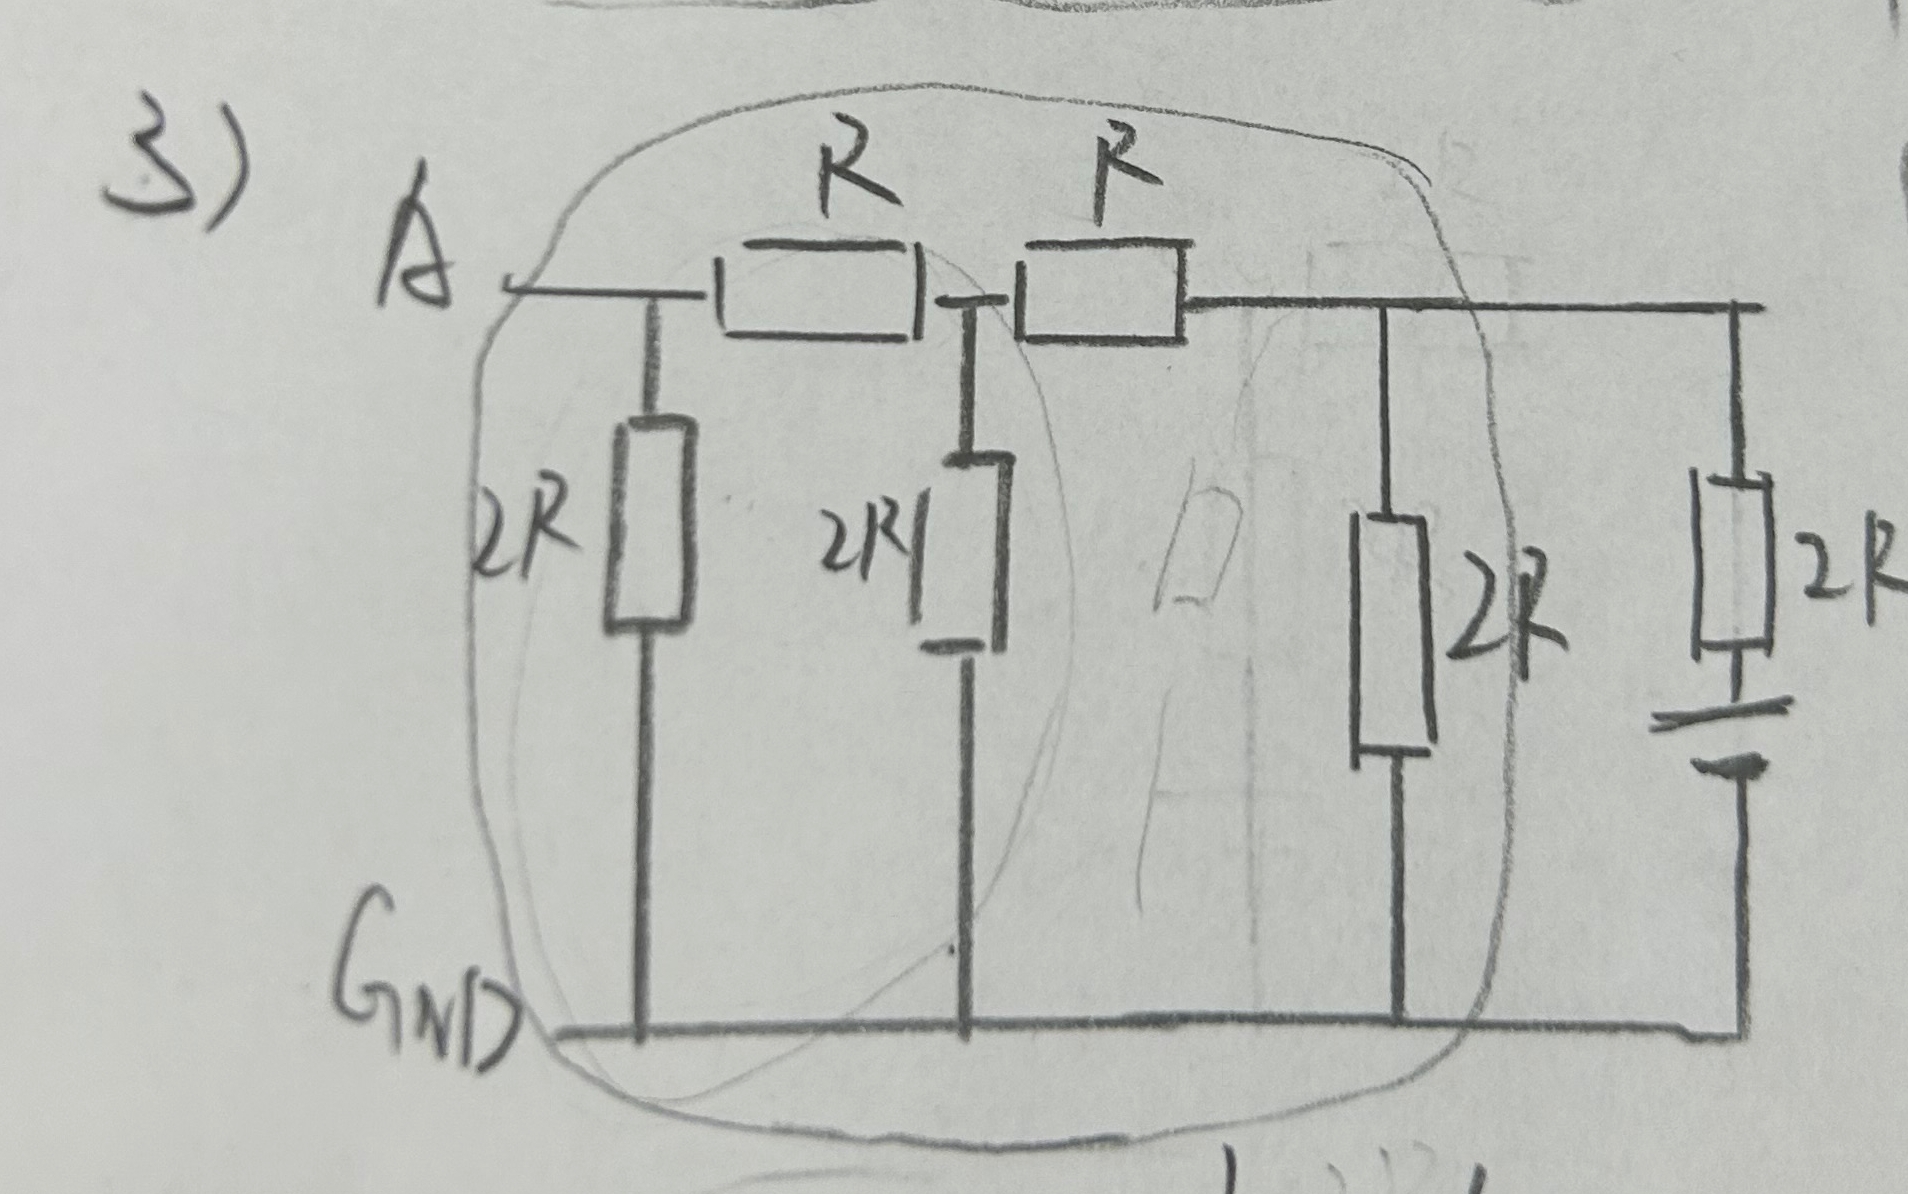 3)
R R
A
2R 2R 2R 2R
GND